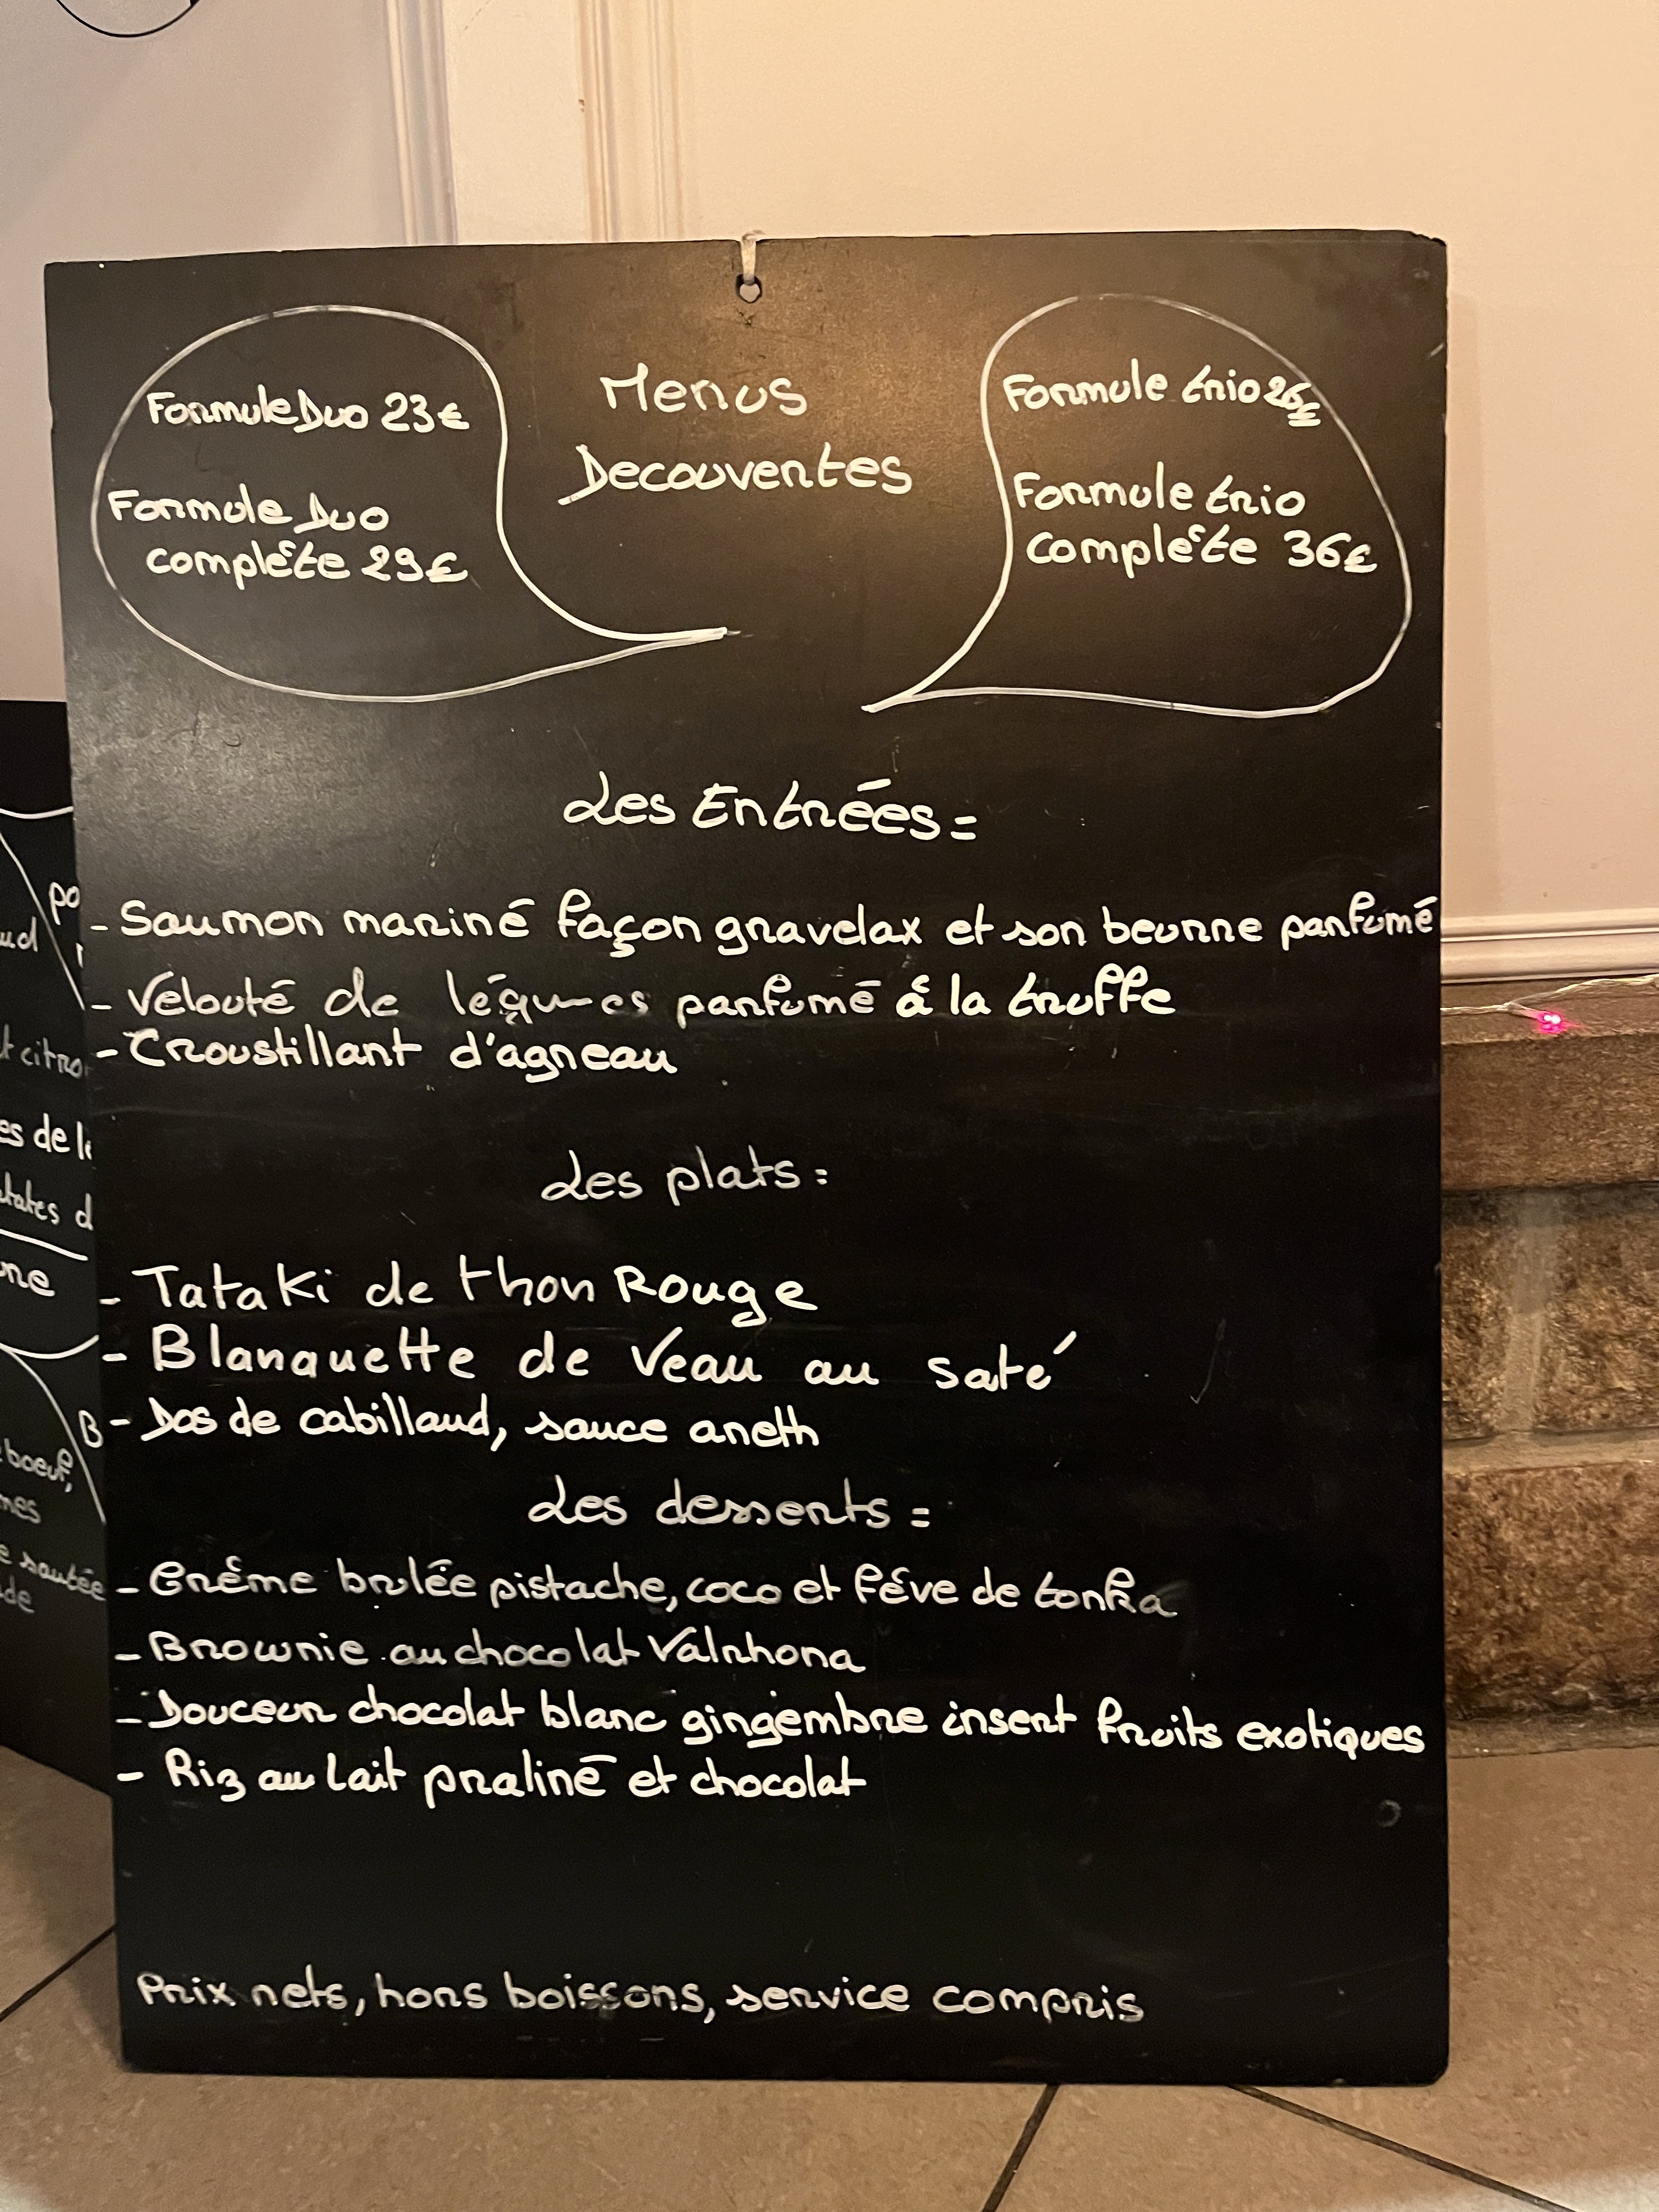 Menus
Decouvertes
Formule Duo 23€
Formule Duo
complète 29€
Formule trio 26€
Formule trio
complète 36€
Les Entrées =
- Saumon mariné façon gravelax et son beurre parfumé
- Velouté de légumes parfumé à la truffe
- Croustillant d'agneau
Les plats :
- Tataki de thon Rouge
- Blanquette de Veau au saté
- Dos de cabillaud, sauce aneth
Les desserts =
- Crème brulée pistache, coco et fève de tonka
- Brownie au chocolat Valrhona
- Douceur chocolat blanc gingembre insert fruits exotiques
- Riz au lait praliné et chocolat
Prix nets, hors boissons, service compris
po
ud
t citro
es de l
tates d
ne
B
boeuf,
mes
e sautée
de